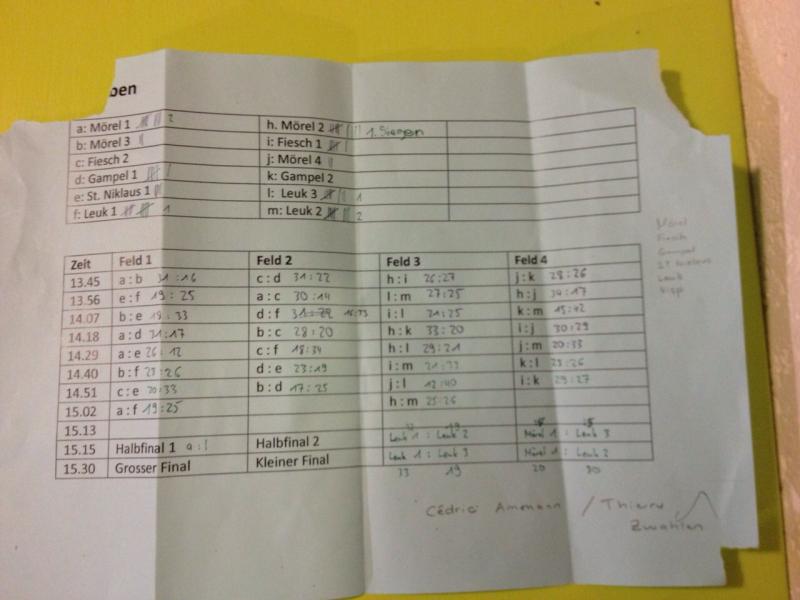 ben
a: Mörel 1 2 h. Mörel 2 1. Siegen
b: Mörel 3 i: Fiesch 1
c: Fiesch 2 j: Mörel 4
d: Gampel 1 k: Gampel 2
e: St. Niklaus 1 l: Leuk 3 1
f: Leuk 1 1 m: Leuk 2 2
Zeit Feld 1 Feld 2 Feld 3 Feld 4
13.45 a:b 31:16 c:d 31:22 h:i 26:27 j:k 28:26
13.56 e:f 19:25 a:c 30:14 l:m 27:25 h:j 34:17
14.07 b:e 18:33 d:f i:l 21:25 k:m 15:42
14.18 a:d 31:17 b:c 28:20 h:k 33:20 i:j 30:29
14.29 a:e 26:12 c:f 18:34 h:l 29:21 j:m 20:33
14.40 b:f 23:26 d:e 23:19 i:m k:l 23:26
14.51 c:e 20:33 b:d 17:25 j:l 12:40 i:k 29:27
15.02 a:f 19:25 h:m 25:26
15.13
15.15 Halbfinal 1 Halbfinal 2 Leuk 1 : Leuk 2 Mörel 1 : Leuk 3
15.30 Grosser Final Kleiner Final Leuk 1 : Leuk 3 Mörel 1 : Leuk 2
33 19 20
Mörel
Fiesch
Gampel
Leuk
Cédric / Thierry
Zwahlen